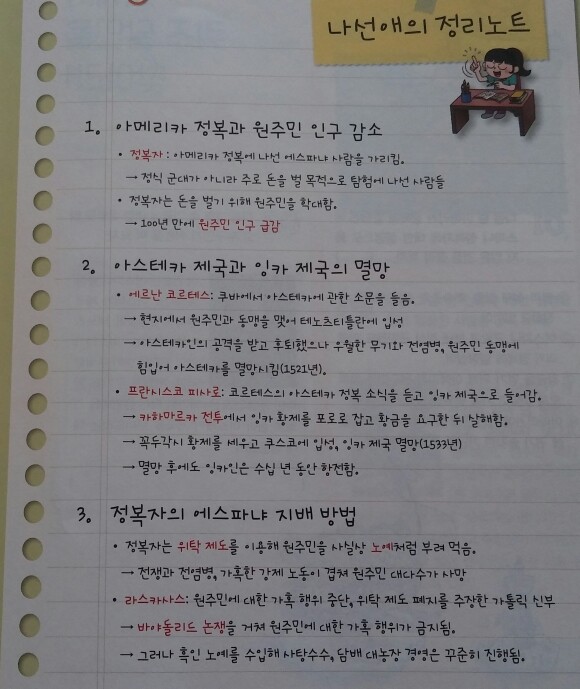 나선애의 정리노트
1. 아메리카 정복과 원주민 인구 감소
• 정복자 : 아메리카 정복에 나선 에스파냐 사람을 가리킴.
→ 정식 군대가 아니라 주로 돈을 벌 목적으로 탐험에 나선 사람들
• 정복자는 돈을 벌기 위해 원주민을 학대함.
→ 100년 만에 원주민 인구 급감
2. 아스테카 제국과 잉카 제국의 멸망
• 에르난 코르테스: 쿠바에서 아스테카에 관한 소문을 들음.
→ 현지에서 원주민과 동맹을 맺어 테노츠티틀란에 입성
→ 아스테카인의 공격을 받고 후퇴했으나 우월한 무기와 전염병, 원주민 동맹에
힘입어 아스테카를 멸망시킴(1521년).
• 프란시스코 피사로: 코르테스의 아스테카 정복 소식을 듣고 잉카 제국으로 들어감.
→ 카하마르카 전투에서 잉카 황제를 포로로 잡고 황금을 요구한 뒤 살해함.
→ 꼭두각시 황제를 세우고 쿠스코에 입성, 잉카 제국 멸망(1533년)
→ 멸망 후에도 잉카인은 수십 년 동안 항전함.
3. 정복자의 에스파냐 지배 방법
• 정복자는 위탁 제도를 이용해 원주민을 사실상 노예처럼 부려 먹음.
→ 전쟁과 전염병, 가혹한 강제 노동이 겹쳐 원주민 대다수가 사망
• 라스카사스: 원주민에 대한 가혹 행위 중단, 위탁 제도 폐지를 주장한 가톨릭 신부
→ 바야돌리드 논쟁을 거쳐 원주민에 대한 가혹 행위가 금지됨.
→ 그러나 흑인 노예를 수입해 사탕수수, 담배 대농장 경영은 꾸준히 진행됨.